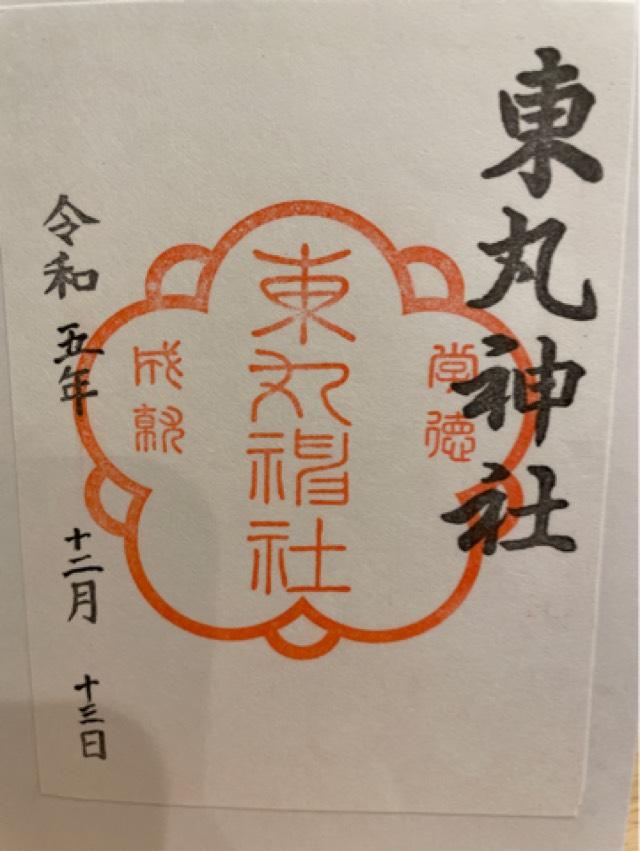 東丸神社
学徳
東丸神社
成就
令和五年 十二月 十三日